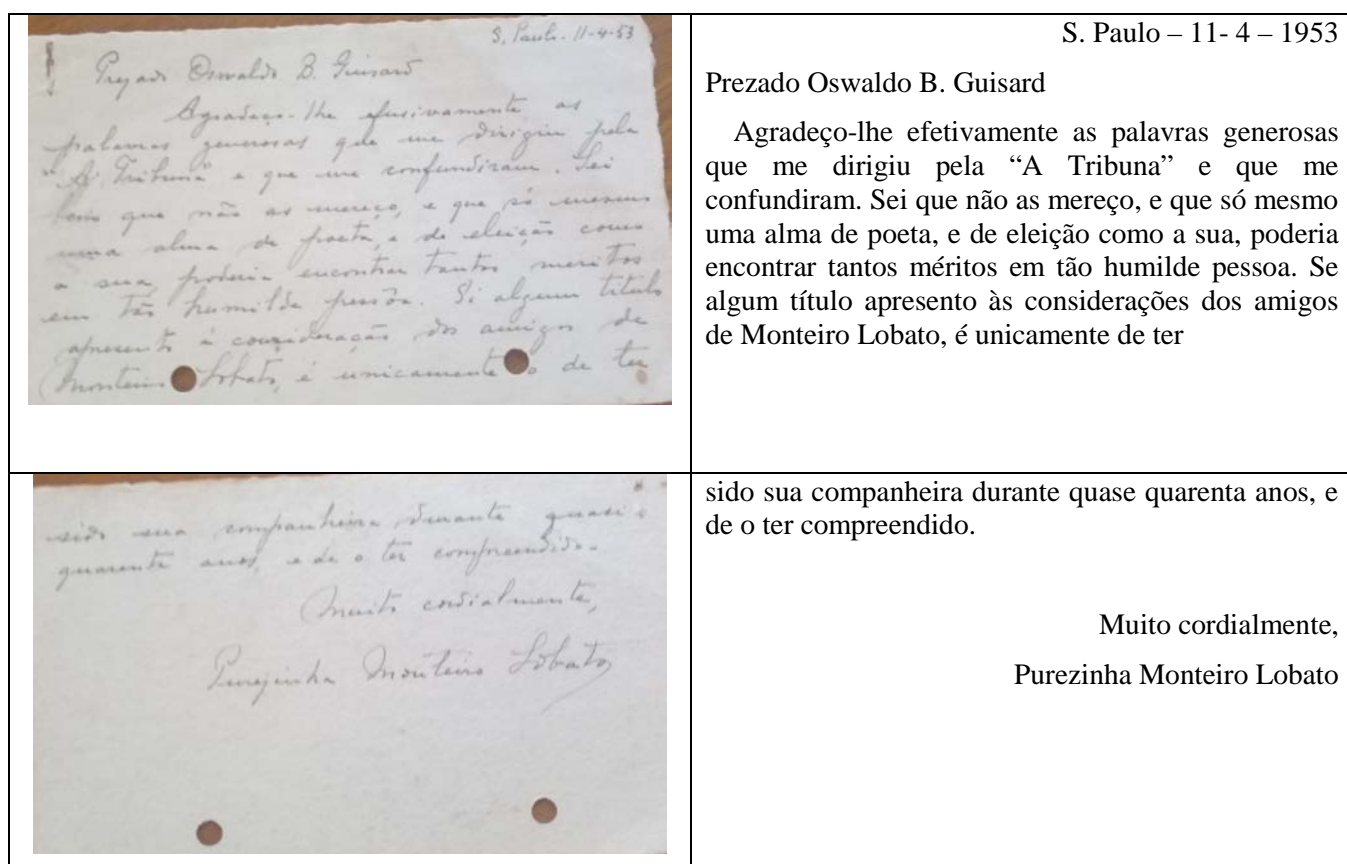 S. Paulo. 11-4-53
Prezado Oswaldo B. Guisard
Agradeço-lhe efusivamente as
palavras generosas que me dirigiu pela
"A Tribuna" e que me confundiram. Sei
bem que não as mereço, e que só mesmo
uma alma de poeta, e de eleição como
a sua, poderia encontrar tantos meritos
em tão humilde pessôa. Si algum titulo
apresento à consideração dos amigos de
Monteiro Lobato, é unicamente o de ter
S. Paulo – 11- 4 – 1953
Prezado Oswaldo B. Guisard
Agradeço-lhe efetivamente as palavras generosas
que me dirigiu pela “A Tribuna” e que me
confundiram. Sei que não as mereço, e que só mesmo
uma alma de poeta, e de eleição como a sua, poderia
encontrar tantos méritos em tão humilde pessoa. Se
algum título apresento às considerações dos amigos
de Monteiro Lobato, é unicamente de ter
sido sua companheira durante quasi
quarenta anos, e de o ter compreendido.
Muito cordialmente,
Purezinha Monteiro Lobato
sido sua companheira durante quase quarenta anos, e
de o ter compreendido.
Muito cordialmente,
Purezinha Monteiro Lobato